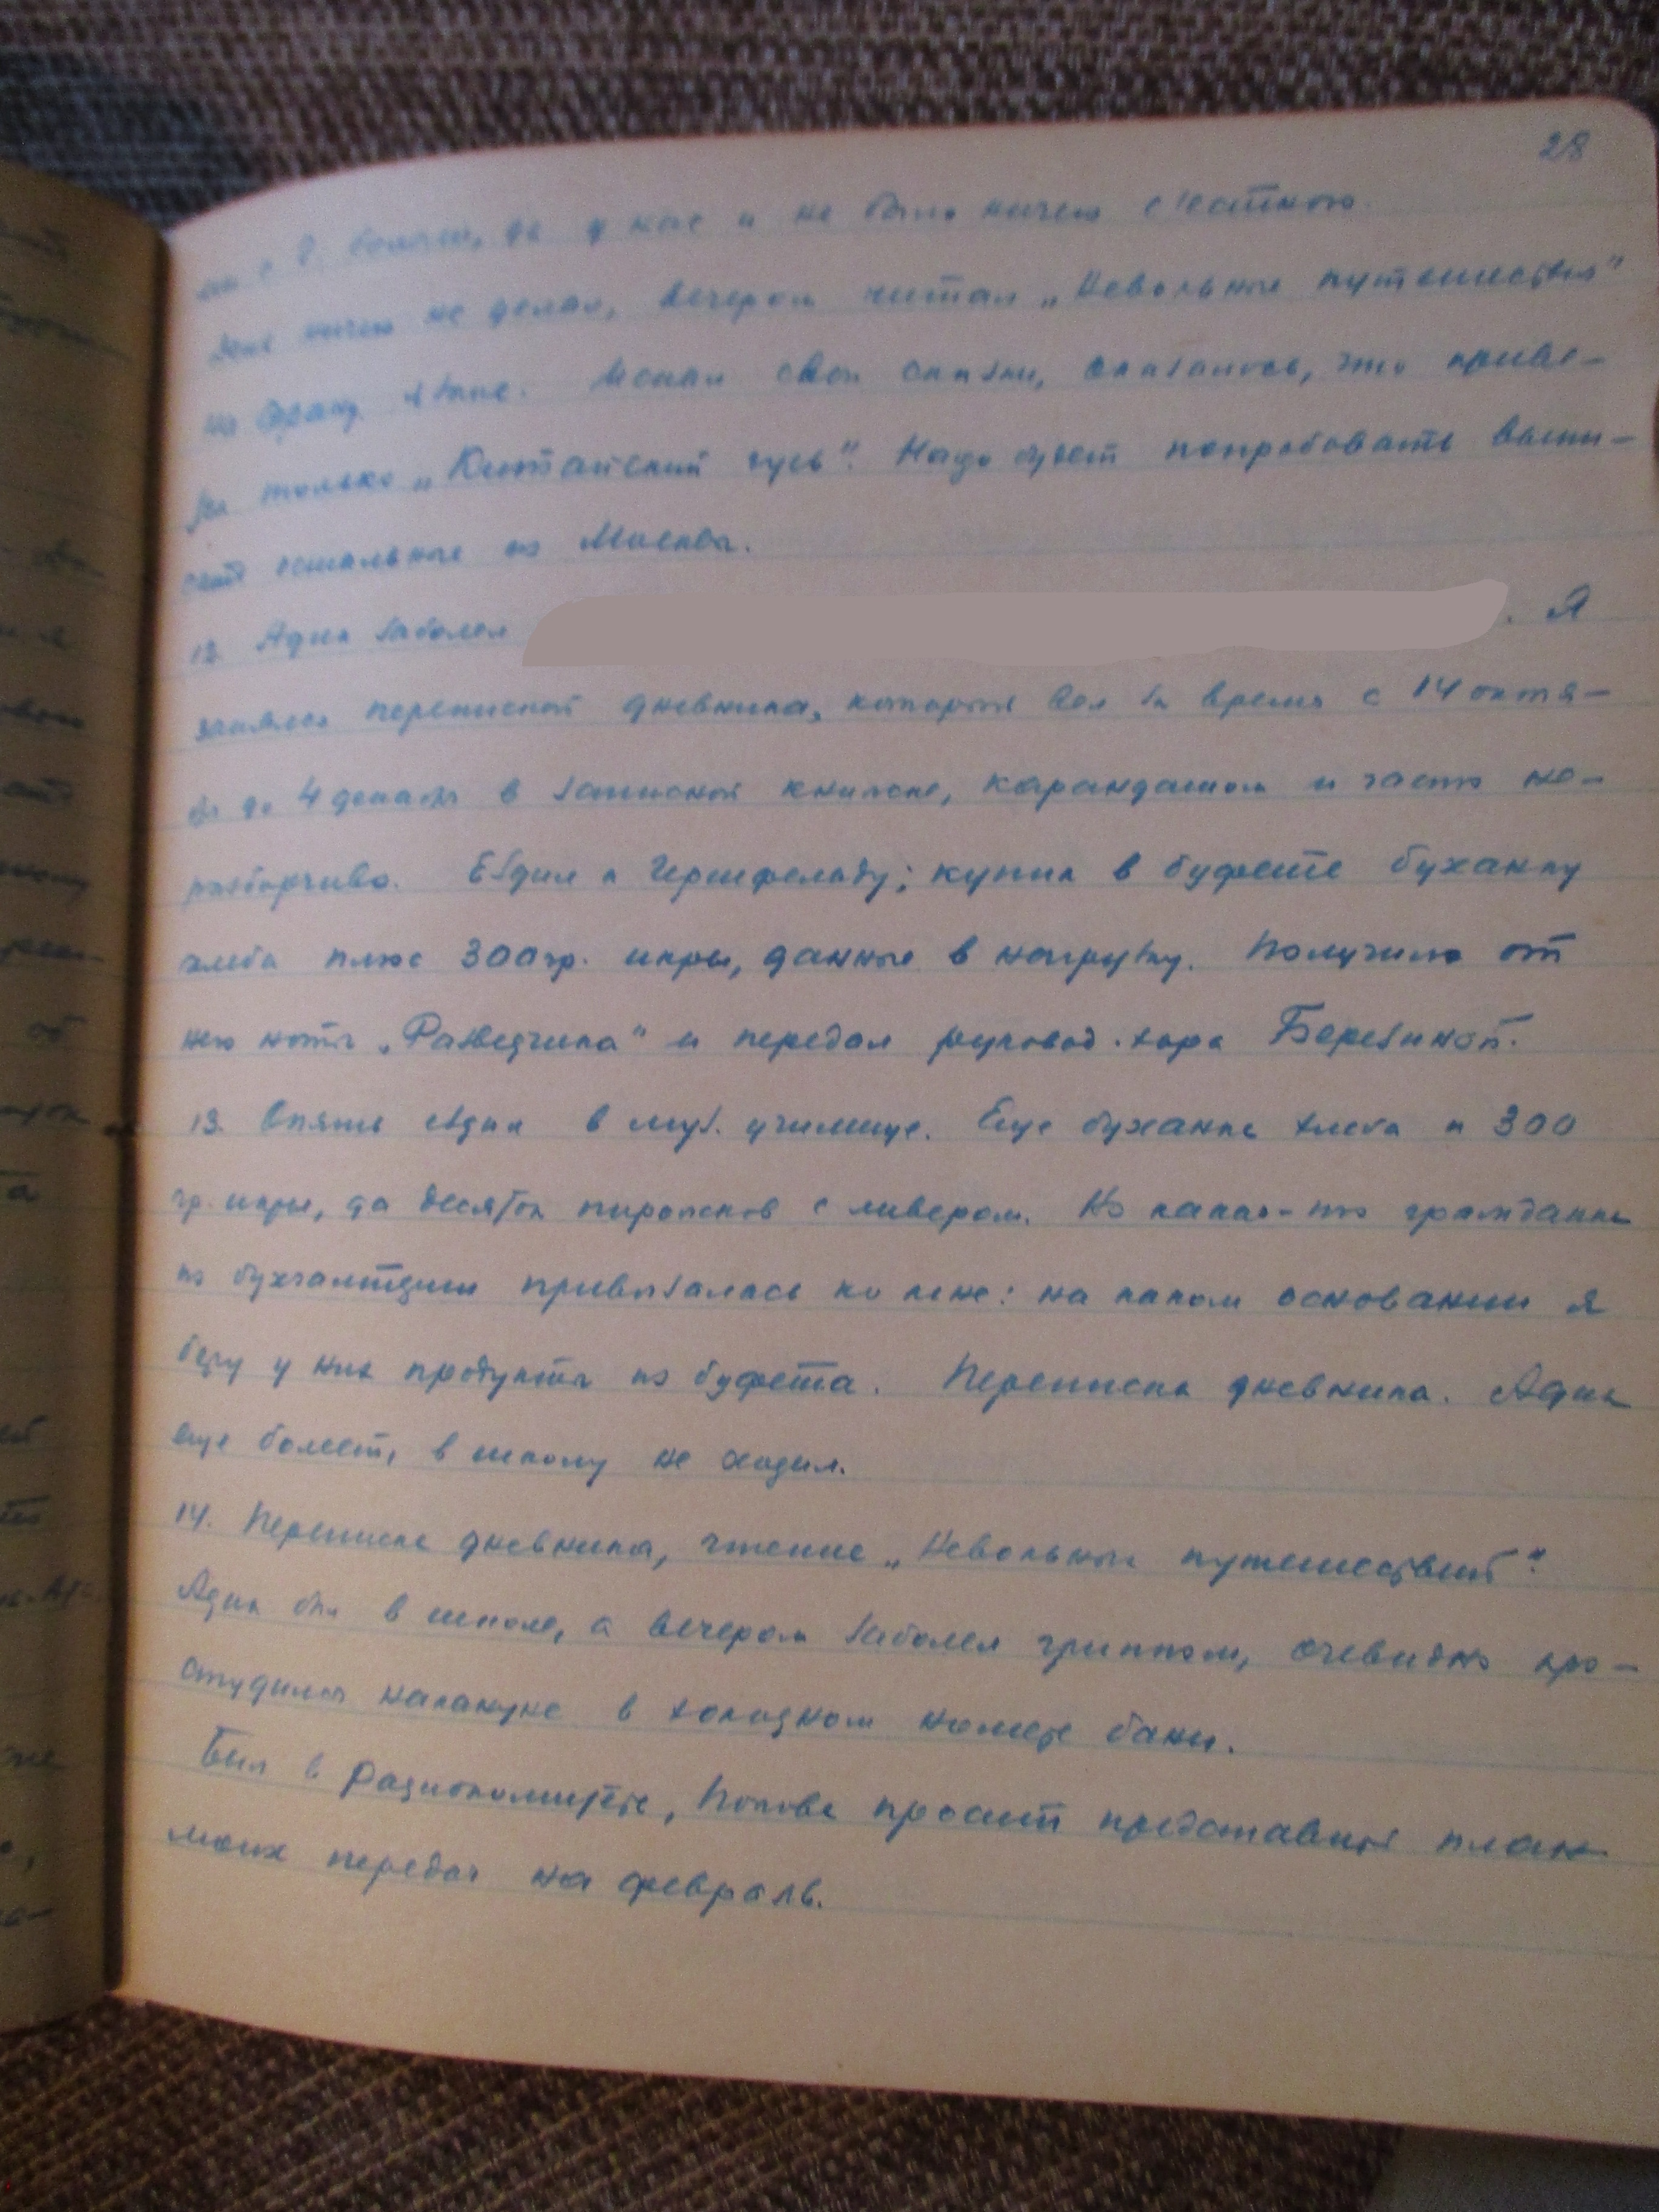 28
да у нас и не было ничего съестного.
День ничего не делал, вечером читал „Невольные путешествия"
на франц. языке. Искал свои сказки, оказалось, что приве-
зли только „Китайский гусь". Надо будет попробовать выпи-
сать остальные из Москвы.
12. Адик заболел . Я
занялся перепиской дневника, который вел за время с 14 октя-
бря до 4 декабря в записной книжке, карандашом и часто не-
разборчиво. Ездил к Герценфельду; купил в буфете буханку
хлеба плюс 300 гр. икры, данные в нагрузку. Получил от
него ноты „Разведчика" и передал руковод. хора Березиной.
13. Опять ездил в муз. училище. Еще буханка хлеба и 300
гр. икры, да десяток пирожков с ливером. Но какая-то гражданка
из бухгалтерии привязалась ко мне: на каком основании я
беру у них продукты из буфета. Переписка дневника. Адик
еще болеет, в школу не ходил.
14. Переписка дневника, чтение „Невольных путешествий".
Адик был в школе, а вечером заболел гриппом, очевидно про-
студился накануне в холодном номере бани.
Был в Радиокомитете, Попова просит представить план
моих передач на февраль.